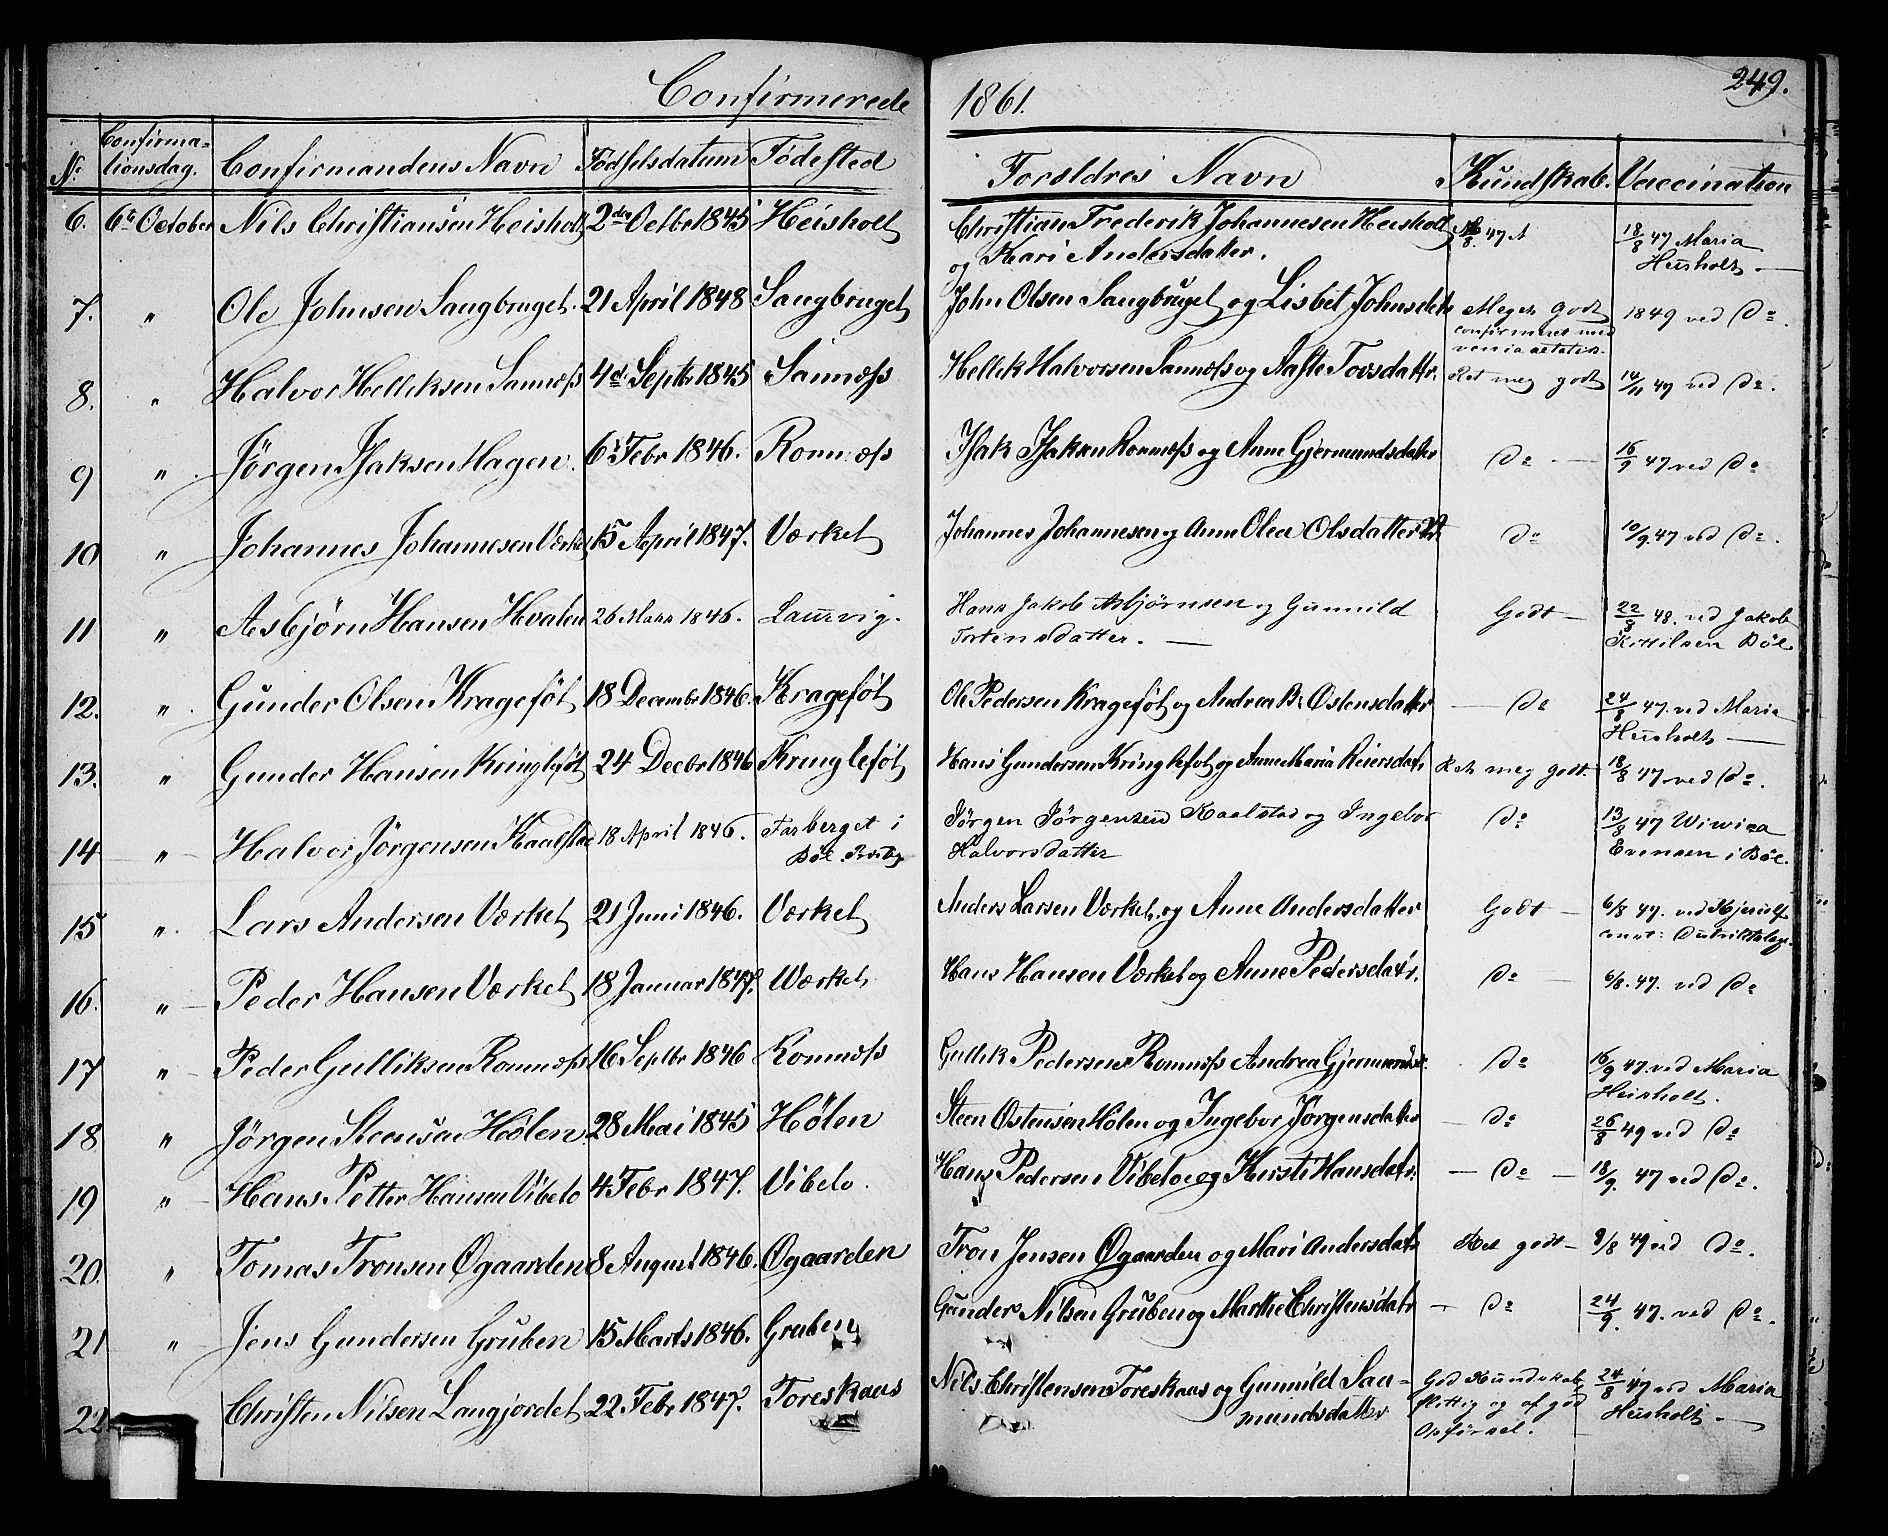 Confirmerede 1861. 249.
No. Confirmationsdag. Confirmandens Navn Födselsdatum Födested Forældres Navn Kundskab. Vaccination
6. 6te October Nils Christiansen Heisholt 2den Octbr 1845 Heisholt Christian Frederik Johannesen Heisholt 18/8 47 Maria
og Kari Andersdatter. Heisholt. —
7. " Ole Johnsen Saugbruget. 21 April 1848 Saugbruget John Olsen Saugbruget og Lisbet Johnsdatr Meget godt 1849 ved Do.
confirmeret med
venia aetatis.
8. " Halvor Helliksen Sannæss 4de Septbr 1845 Sannæss Hellik Halvorsen Sannæss og Aaste Torsdattr. Ret meg godt 14/11 47 ved Do.
9 " Jörgen Isaksen Hagen. 6te Febr 1846. Romnæss Isak Isaksen Romnæss og Anne Gjermundsdatter Do — 16/9 47 ved Do
10 " Johannes Johannesen Værket 15 April 1847. Værket Johannes Johannesen og Anne Olea Olsdatter Do 10/9. 47 ved Do.
11 " Asbjörn Hansen Hvalen 26 Mars 1846. Laurvig. Hans Jakob Asbjørnsen og Gunnild Godt — 22/8 48. ved Jakob
Tortensdatter. — Kittilsen Bøe
12. " Gunder Olsen Krageföt 18 Decembr 1846. Krageföt Ole Pedersen Krageföt og Andrea B. Østensdatter — Do 24/8 47. ved Maria
Heisholt —
13. " Gunder Hansen Kringleföt 24 Decbr 1846 Kringleföt Hans Gundersen Kringlefot og Anne Maria Reiersdatr Ret meg godt. 18/8 47 ved Do.
14 " Halvor Jörgensen Kaalstad 18 April 1846. Farberget i Jørgen Jørgensen Kaalstad og Ingebor Do 13/8 47 Wiwina
Bøe Halvorsdatter Evensen i Bøe.
15 " Lars Andersen Værket 21 Juni 1846. Værket Anders Larsen Værket og Anne Andersdatter Godt — 6/8 47. ved Hjerulf
16. " Peder Hansen Værket 18 Januar 1847. Wærket Hans Hansen Værket og Anne Pedersdatr. Do — 6/8. 47. ved Do
17 " Peder Gulliksen Romnæss 16 Septbr 1846 Romnæss Gullik Pedersen Romnæss Andrea Gjermundsd. Do 16/9 47 ved Maria
Heisholt.
18 " Jörgen Steensen Hölen 28 Mai 1845 Hölen Steen Ostensen Hölen og Ingebor Jörgensdatter — Do 26/8 49 ved Do
19 " Hans Petter Hansen Vibeto 4 Febr 1847. Vibeto. Hans Pedersen Vibetoe og Kirsti Hansdatr. — Do — 18/9. 47 ved Do.
20 " Tomas Tronsen Øgaarden 8 August 1846. Øgaarden Tron Jensen Øgaarden og Mari Andersdatr Ret godt — 8/8 49 ved Do.
21 " Jens Gundersen Gruben 15 Marts 1846. Gruben Gunder Nilsen Gruben og Marthe Christensdatr — Do 24/9. 47. ved Do.
22 Christen Nilsen Langjordet 22 Febr 1847. Toreskaas Nils Christensen Toreskaas og Gunnild Saa- God Kundskab 24/8 47 ved Maria
mundsdatter flittig og af god Heisholt —
Opførsel.